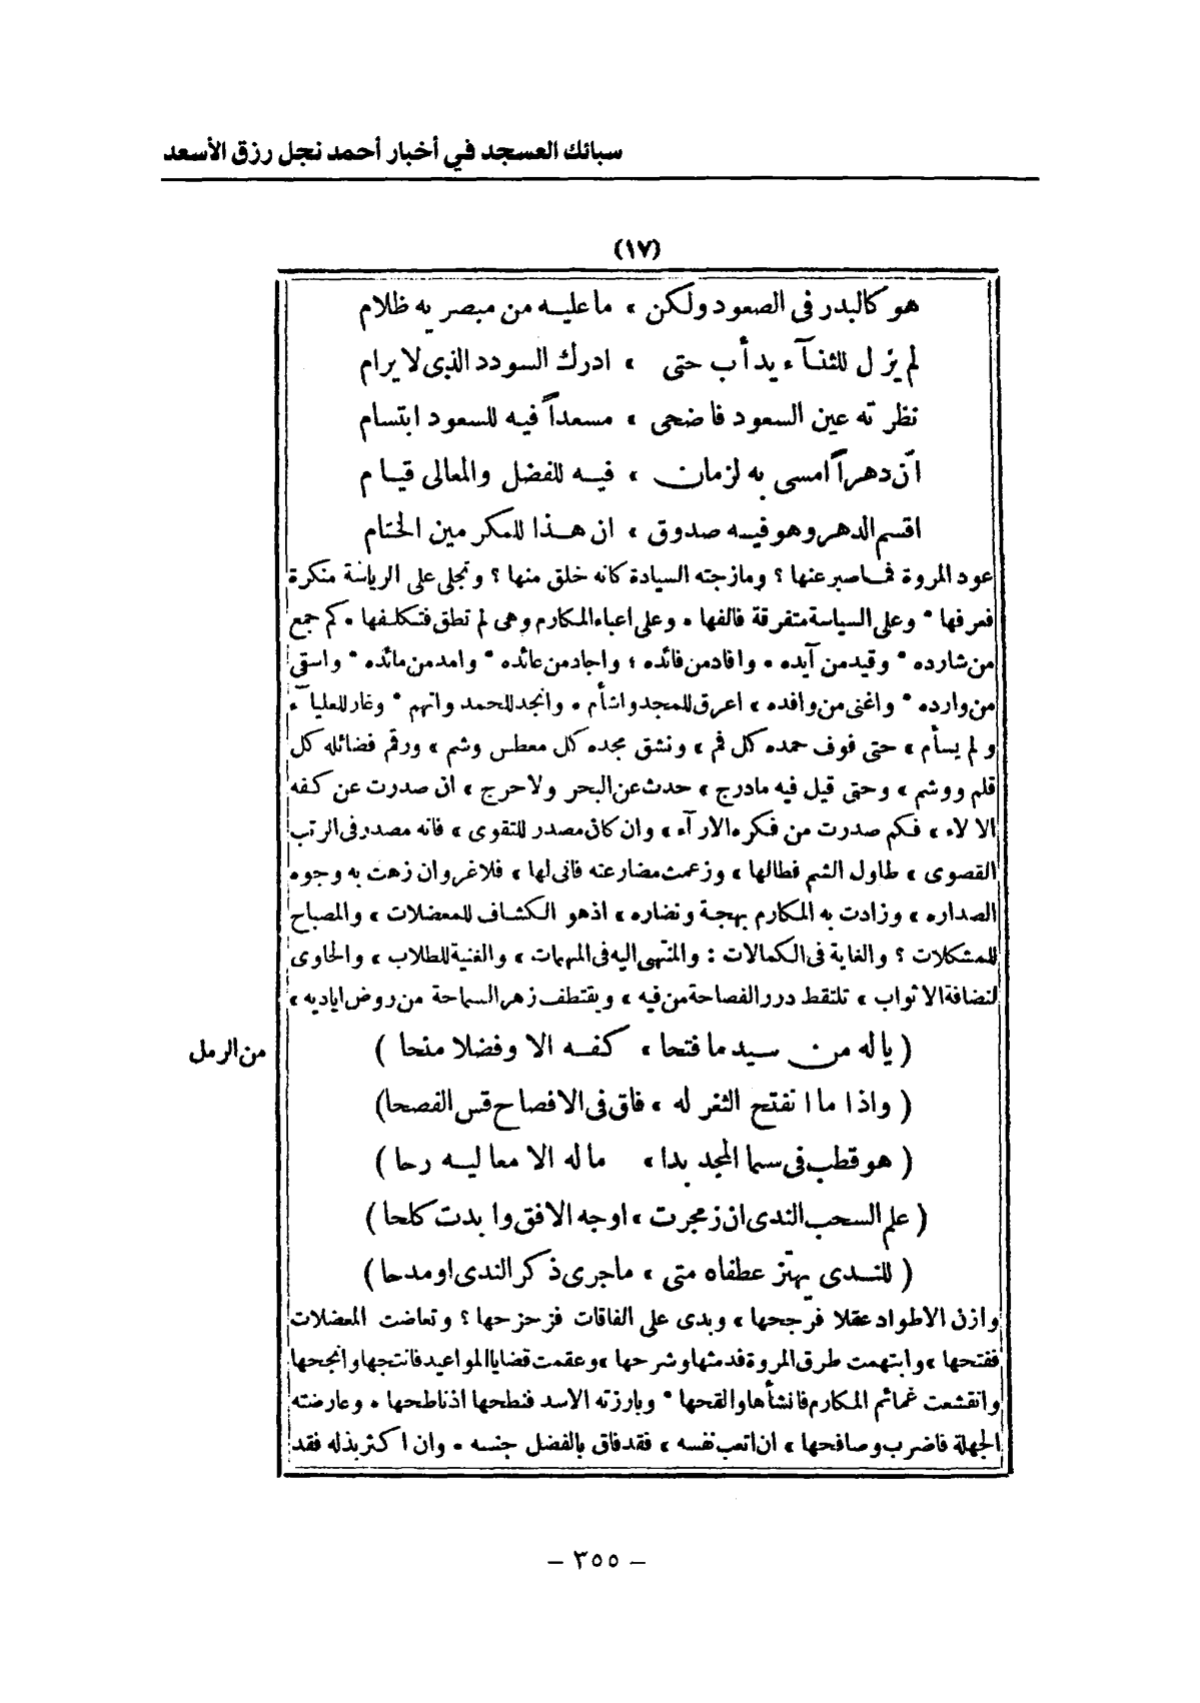 سبائك العسجد في أخبار أحمد نجل رزق الأسعد
(١٧)
هو كالبدر فى الصعود ولكن ، ما عليه من مبصر به ظلام
لم يزل للثنآء يدأب حتى ، ادرك السودد الذى لا يرام
نظرته عين السعود فاضحى ، مسعداً فيه للسعود ابتسام
انّ دهراً امسى به لزمان ، فيه للفضل والمعالى قيام
اقسم الدهر وهو فيه صدوق ، ان هذا للمكرمين الختام
عود المروة فما صبر عنها ؟ ومازجته السيادة كانه خلق منها ؟ وتجلى على الرياسة منكرة
فعرفها * وعلى السياسة متفرقة فالفها ٠ وعلى اعباء المكارم وهى لم تطق فتكلفها ٠ كم جمع
من شارده * وقيد من آيده ٠ وافاد من فائده ؛ واجاد من عائده * وامد من مائده * واستى
من وارده * واغنى من وافده ، اعرق للمجد واشأم ٠ وانجد للحمد واتهم * وغار للعليآء
ولم يسأم ، حتى فوف حمده كل فم ، ونشق مجده كل معطس وشم ، ورقم فضائله كل
قلم ووشم ، وحتى قيل فيه مادرج ، حدث عن البحر ولا حرج ، ان صدرت عن كفه
الالاء ، فكم صدرت من فكره الارآء ، وان كان مصدر للتقوى ، فانه مصدر فى الرتب
القصوى ، طاول الشم فطالها ، وزعمت مضارعته فانى لها ، فلا غروان زهت به وجوه
الصداره ، وزادت به المكارم بهجة ونضاره ، اذهو الكشاف للمعضلات ، والمصباح
للمشكلات ؟ والغاية فى الكمالات : والمنتهى اليه فى المهمات ، والغنية للطلاب ، والحاوى
لنضافة الاثواب ، تلتقط درر الفصاحة من فيه ، ويقتطف زهر السماحة من روض اياديه ،
( ياله من سيد ما فتحا ، كفه الا وفضلا منحا ) من الرمل
( واذا ما انفتح الثغر له ، فاق فى الافصاح قس الفصحا )
( هو قطب فى سما المجد بدا ، ما له الا معاليه رحا )
( علم السحب الندى ان زمجرت ، اوجه الافق وابدت كلحا )
( للندى يهتز عطفاه متى ، ما جرى ذكر الندى او مدحا )
وازن الاطواد عقلا فرجحها ، وبدى على الفاقات فزحزحها ؟ وتعاضت المعضلات
ففتحها ، وابتهمت طرق المروة فدمثها وشرحها ، وعقمت قضايا المواعيد فانتجها وانجحها
وانقشعت غمائم المكارم فانشأها والقحها * وبارزته الاسد فنطحها اذ ناطحها ٠ وعارضته
الجهلة فاضرب وصافحها ، ان اتعب نفسه ، فقد فاق بالفضل جنسه ٠ وان اكثر بذله فقد
– ٣٥٥ –